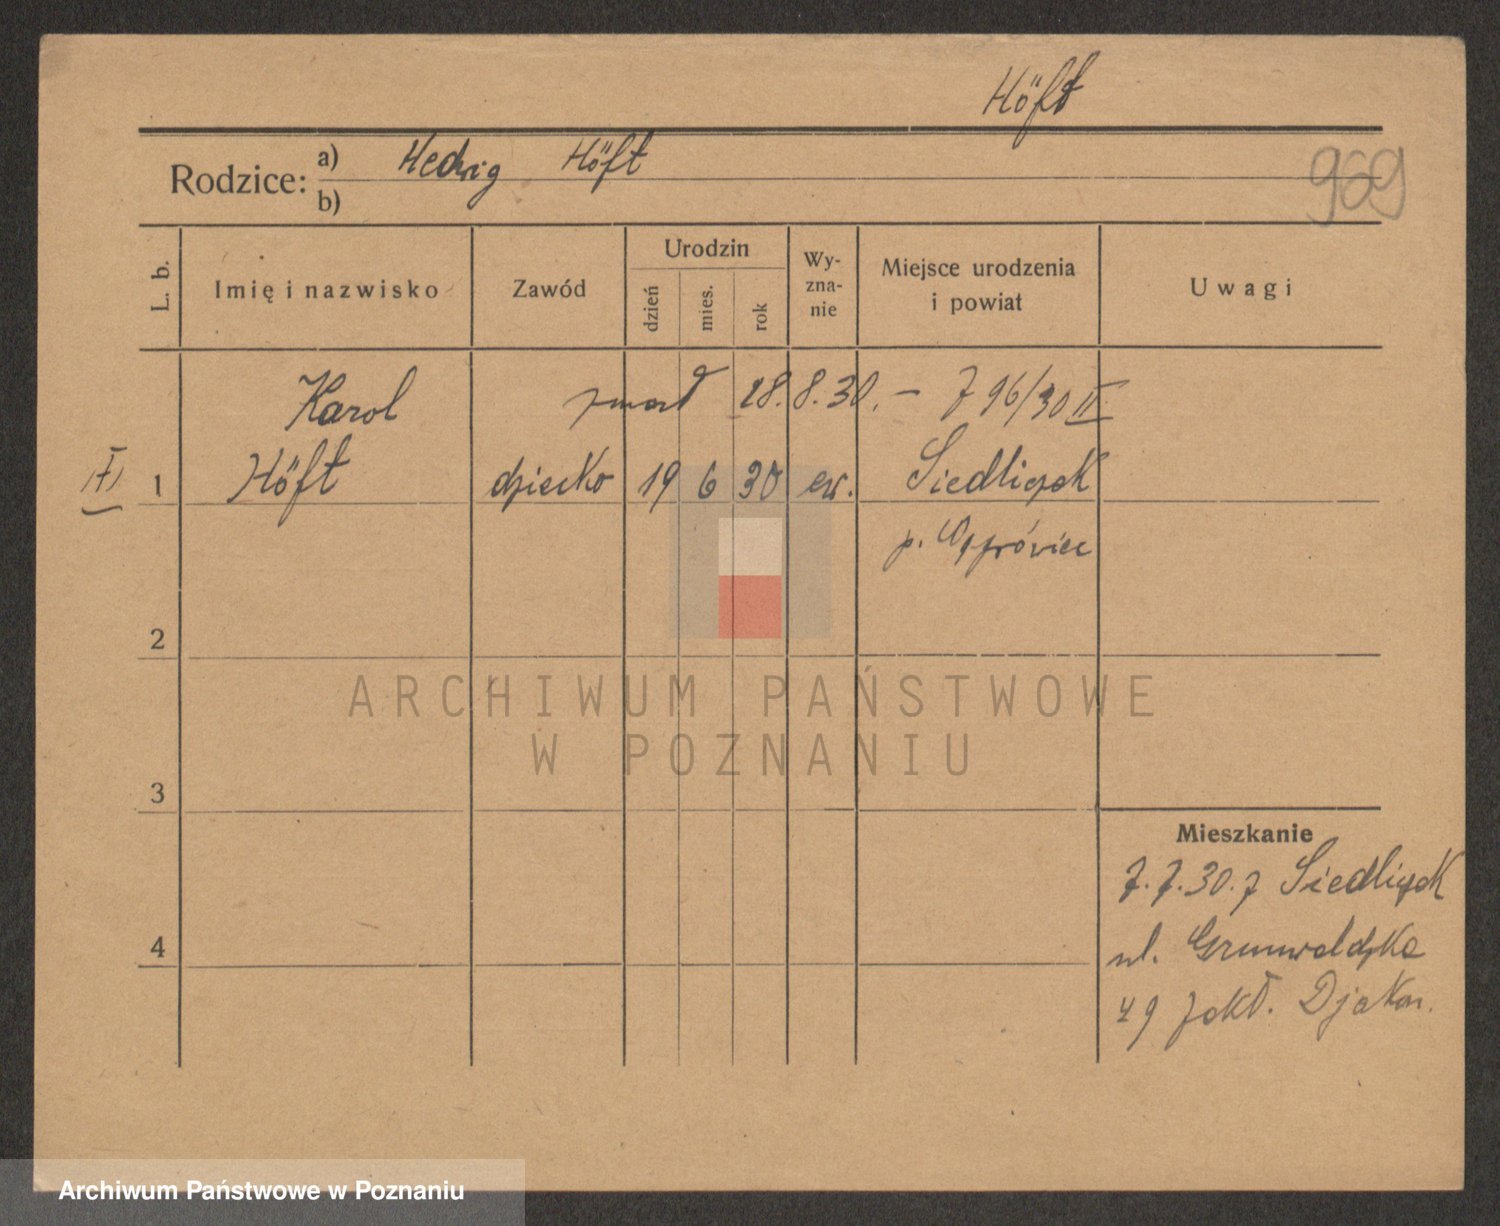 Höft
Rodzice: a) Hedwig Höft
b)
969
L. b.
Imię i nazwisko
Zawód
Urodzin
dzień
mies.
rok
Wy-
zna-
nie
Miejsce urodzenia
i powiat
Uwagi
Karol zmarł 28.8.30. — 796/30 II
1 Höft dziecko 19 6 30 ew. Siedliszek
p.
2
ARCHIWUM PAŃSTWOWE
W POZNANIU
3
Mieszkanie
7.7.30. z Siedliszek
4
ul. Grunwaldzka
49 zakł. Djakon.
Archiwum Państwowe w Poznaniu